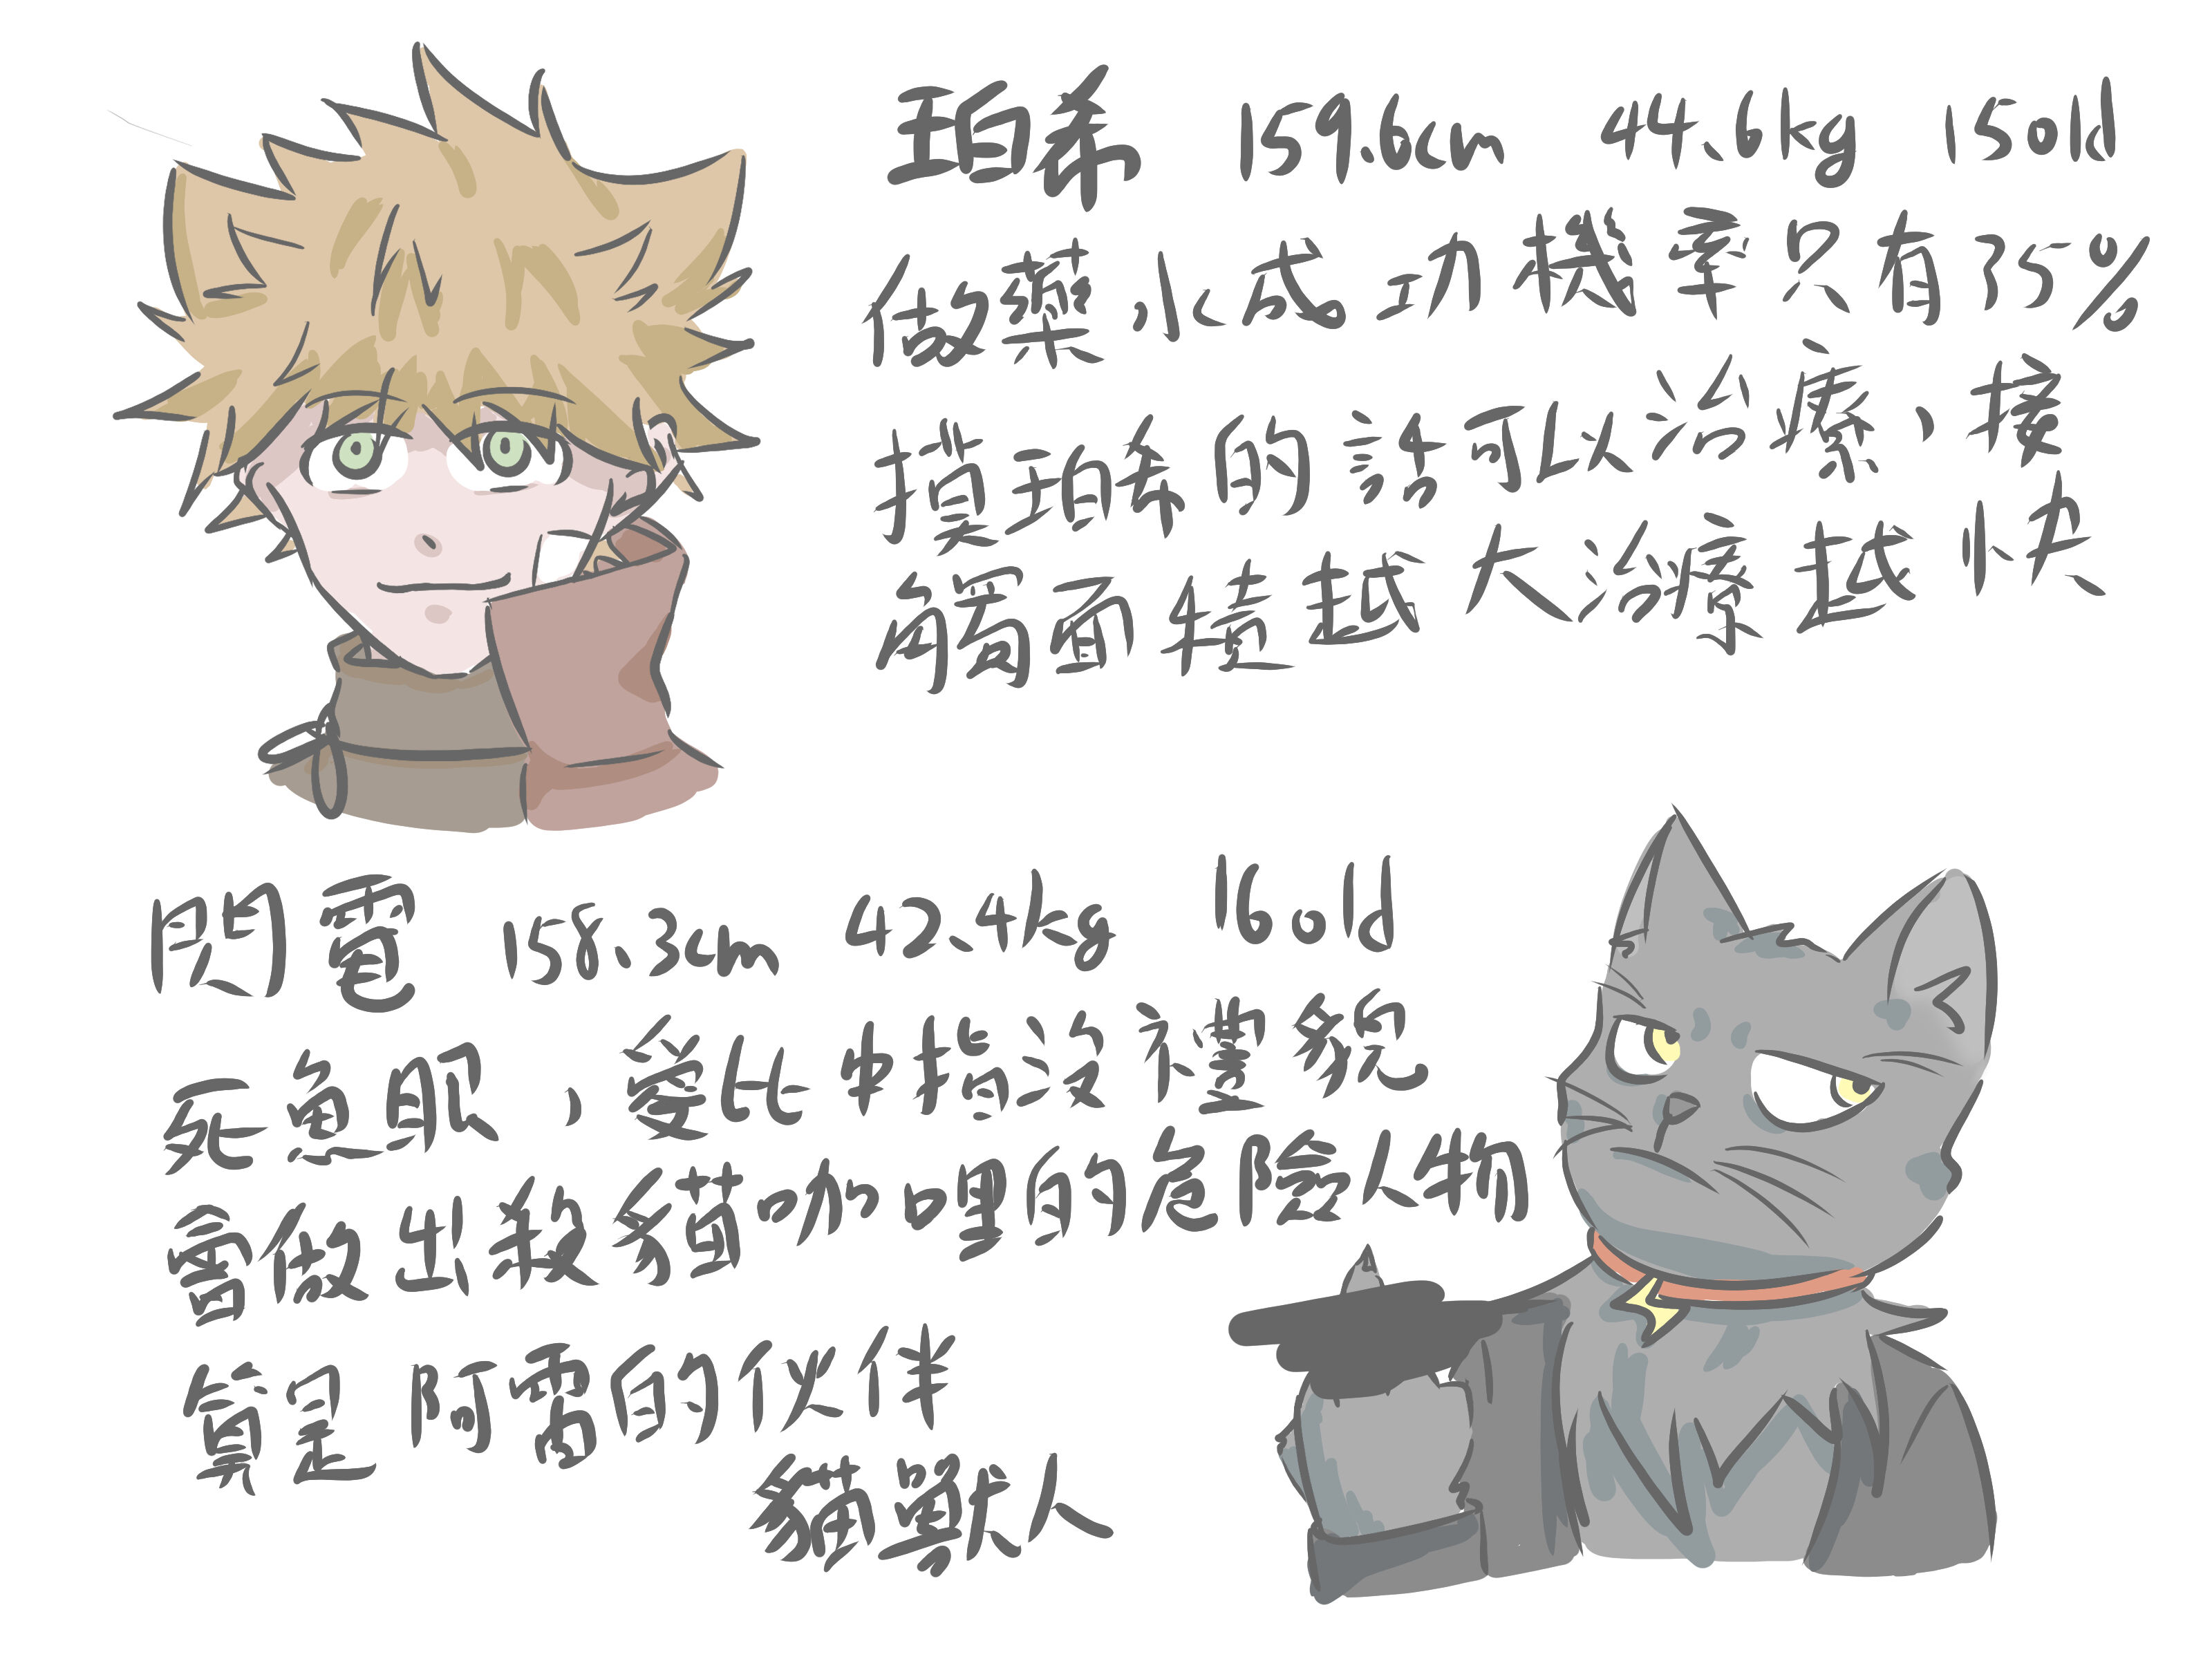 珀希 159.6cm 44.6kg 15old
做藥,小成功機率只有35%
摸珀希的話可以治療,接
觸面積越大治療越快
閃電 158.3cm 42.4kg 16old
死魚眼,愛比中指沒禮貌.
會做出殺貓咖哩的危險人物
算是阿雷的伙伴
貓獸人